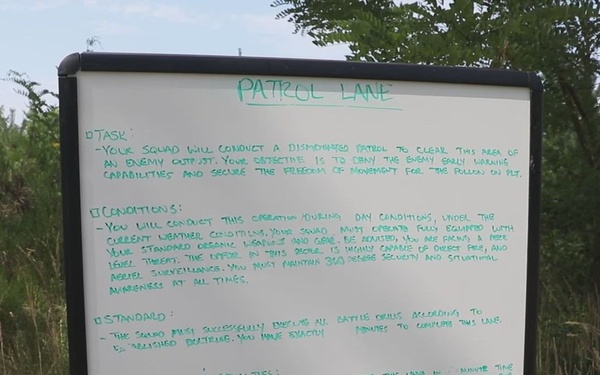 PATROL LANE
□TASK:
-YOUR SQUAD WILL CONDUCT A DISMOUNTED PATROL TO CLEAR THIS AREA OF
AN ENEMY OUTPOST. YOUR OBJECTIVE IS TO DENY THE ENEMY EARLY WARNING
CAPABILITIES AND SECURE THE FREEDOM OF MOVEMENT FOR THE FOLLOW ON PLT.
□CONDITIONS:
- YOU WILL CONDUCT THIS OPERATION DURING DAY CONDITIONS, UNDER THE
CURRENT WEATHER CONDITIONS. YOUR SQUAD MUST OPERATE FULLY EQUIPPED WITH
YOUR STANDARD ORGANIC WEAPONS AND GEAR. BE ADVISED, YOU ARE FACING A PEER
LEVEL THREAT. THE OPFOR IN THIS SECTOR IS HIGHLY CAPABLE OF DIRECT FIRE, AND
AERIAL SURVEILLANCE. YOU MUST MAINTAIN 360 DEGREE SECURITY AND SITUATIONAL
AWARENESS AT ALL TIMES.
□STANDARD:
- THE SQUAD MUST SUCCESSFULLY EXECUTE ALL BATTLE DRILLS ACCORDING TO
DOCTRINE. YOU HAVE EXACTLY MINUTES TO COMPLETE THIS LANE.
THIS LANE MINUTE TIME